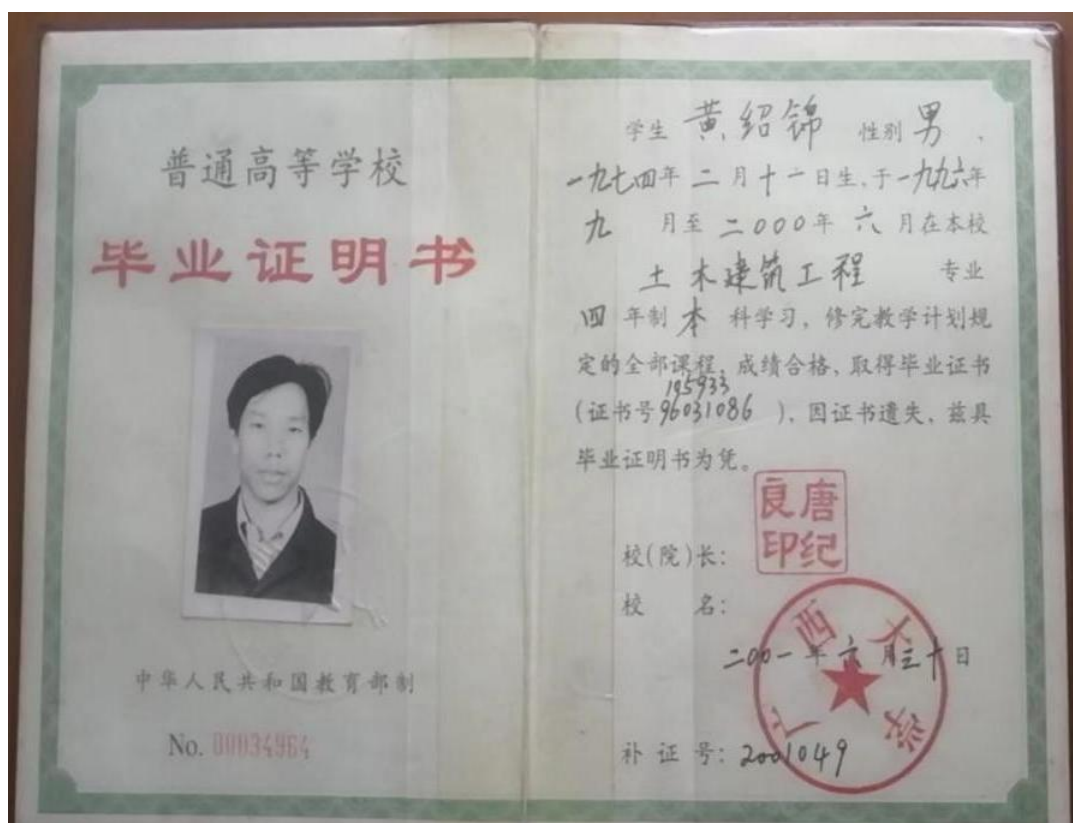 普通高等学校
毕业证明书
中华人民共和国教育部制
No. 00034964
学生 黄绍锦 性别 男、
一九七四年 二月十一日生,于一九九六年
九 月至 二000年 六 月在本校
土木建筑工程 专业
四 年制 本 科学习,修完教学计划规
定的全部课程,成绩合格,取得毕业证书
195933
(证书号96031086 ),因证书遗失,兹具
毕业证明书为凭。
唐纪良印
校(院)长:
校 名:
广西大学
二00一年六月三十日
补证号:2001049